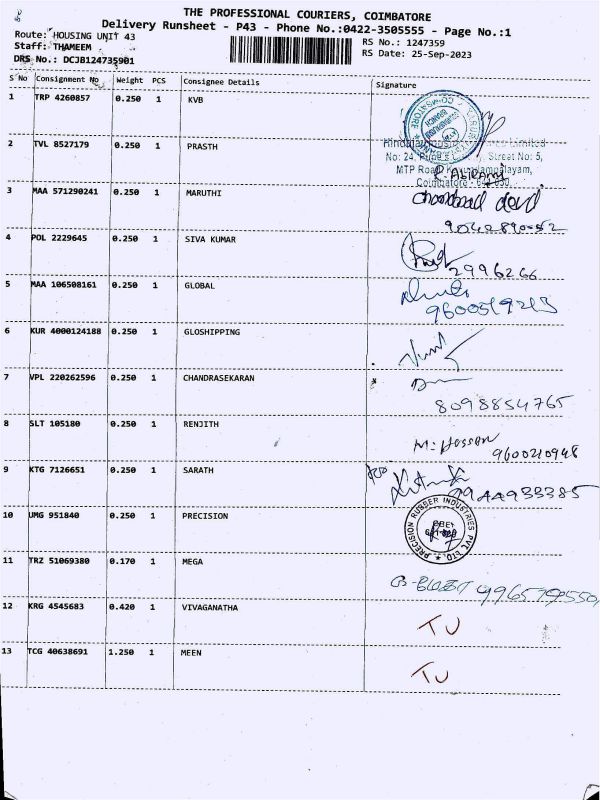 THE PROFESSIONAL COURIERS, COIMBATORE
Delivery Runsheet - P43 - Phone No.:0422-3505555 - Page No.:1
Route: HOUSING UNIT 43
RS No.: 1247359
Staff: THAMEEM
RS Date: 25-Sep-2023
DRS No.: DCJB124735901
S No Consignment No Weight PCS Consignee Details Signature
1 TRP 4260857 0.250 1 KVB
2 TVL 8527179 0.250 1 PRASTH
Limited
No: 24, Street No: 5,
MTP Road,
Coimbatore
3 MAA 571290241 0.250 1 MARUTHI
4 POL 2229645 0.250 1 SIVA KUMAR
2996266
5 MAA 106508161 0.250 1 GLOBAL
6 KUR 4000124188 0.250 1 GLOSHIPPING
7 VPL 220262596 0.250 1 CHANDRASEKARAN
8098854765
8 SLT 105180 0.250 1 RENJITH
M. Hassan
9600210948
9 KTG 7126651 0.250 1 SARATH
9944933385
10 UMG 951840 0.250 1 PRECISION
PRECISION RUBBER INDUSTRIES PVT LTD.
11 TRZ 51069380 0.170 1 MEGA
12 KRG 4545683 0.420 1 VIVAGANATHA
TU
13 TCG 40638691 1.250 1 MEEN
TU